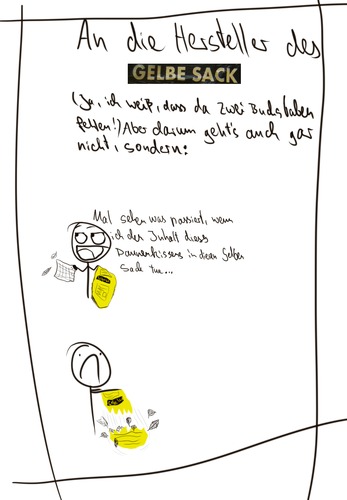 An die Hersteller des
GELBE SACK
(Ja, ich weiß, dass da zwei Buchstaben
fehlen!) Aber darum geht's auch gar
nicht, sondern:
Mal sehen was passiert, wenn
ich den Inhalt dieses
Daunenkissens in diesen Gelben
Sack tue...